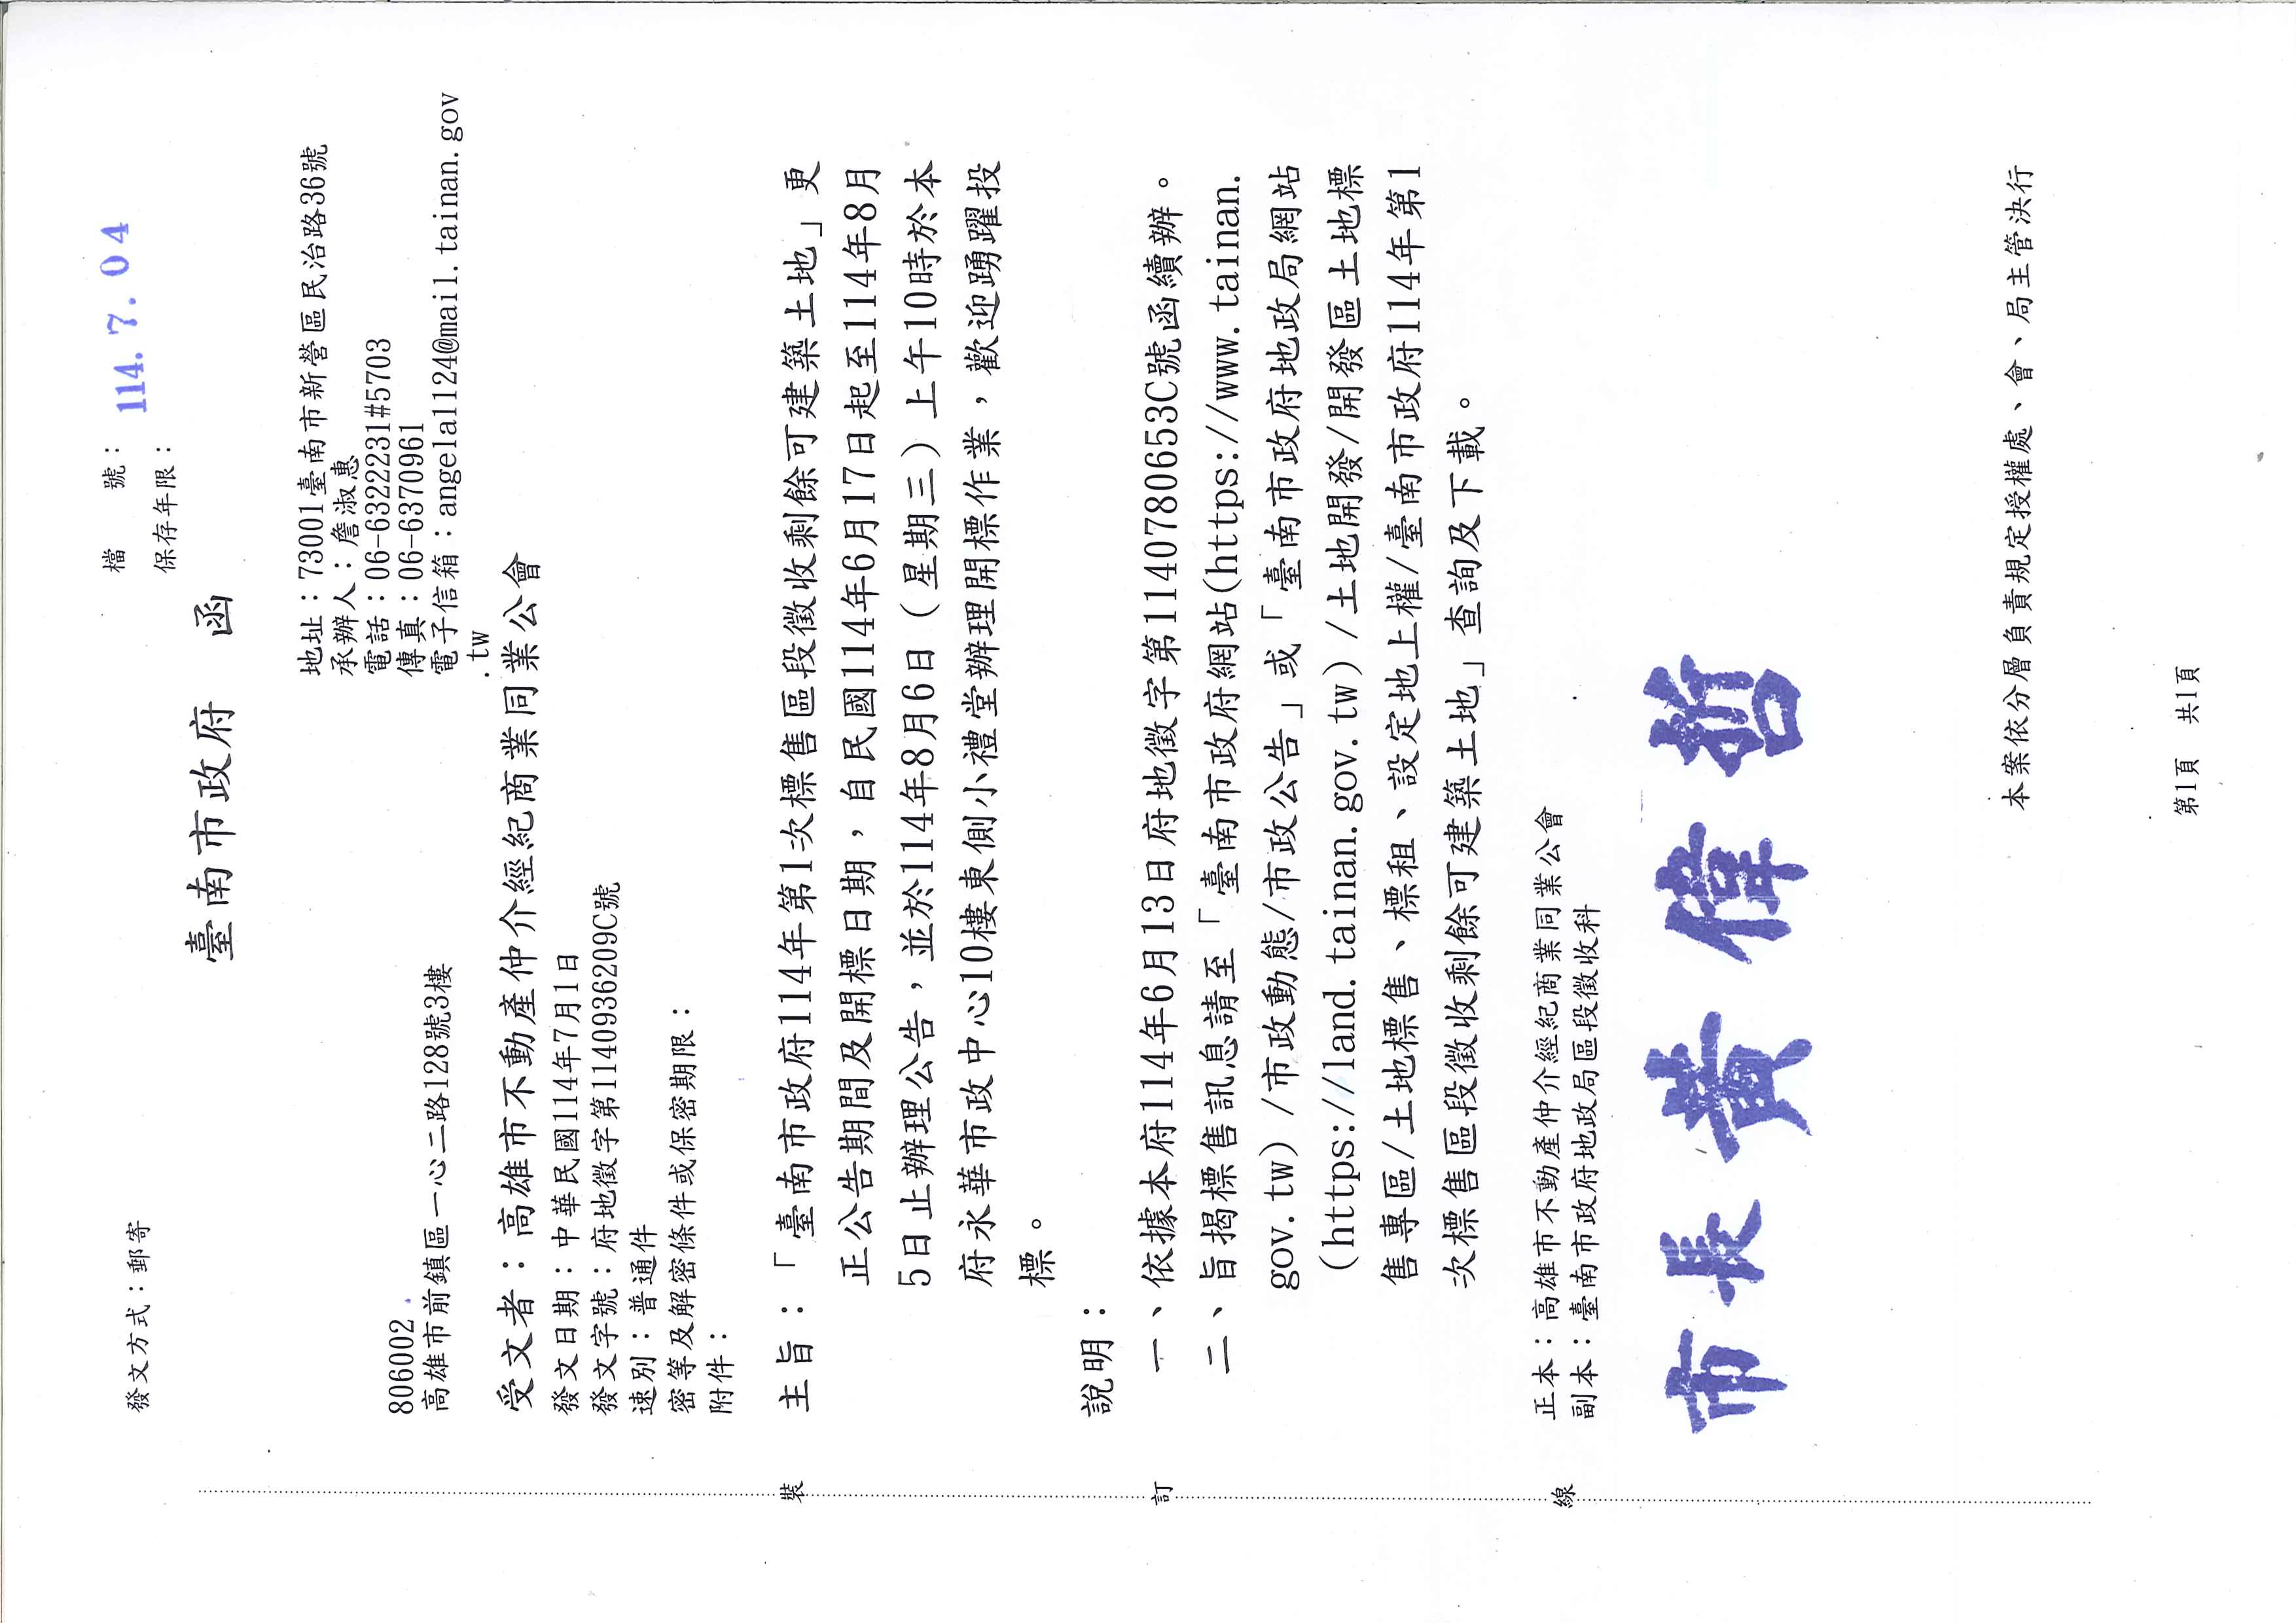 檔　　號：
保存年限：
114. 7. 04
發文方式：郵寄
臺南市政府　函
地址：73001臺南市新營區民治路36號
承辦人：詹淑惠
電話：06-6322231#5703
傳真：06-6370961
電子信箱：angela1124@mail.tainan.gov
.tw
806002
高雄市前鎮區一心二路128號3樓
受文者：高雄市不動產仲介經紀商業同業公會
發文日期：中華民國114年7月1日
發文字號：府地徵字第1140936209C號
速別：普通件
密等及解密條件或保密期限：
附件：
主旨：「臺南市政府114年第1次標售區段徵收剩餘可建築土地」更
正公告期間及開標日期，自民國114年6月17日起至114年8月
5日止辦理公告，並於114年8月6日（星期三）上午10時於本
府永華市政中心10樓東側小禮堂辦理開標作業，歡迎踴躍投
標。
說明：
一、依據本府114年6月13日府地徵字第1140780653C號函續辦。
二、旨揭標售訊息請至「臺南市政府網站(https://www.tainan.
gov.tw) /市政動態/市政公告」或「臺南市政府地政局網站
(https://land.tainan.gov.tw) /土地開發/開發區土地標
售專區/土地標售、標租、設定地上權/臺南市政府114年第1
次標售區段徵收剩餘可建築土地」查詢及下載。
正本：高雄市不動產仲介經紀商業同業公會
副本：臺南市政府地政局區段徵收科
市長黃偉哲
本案依分層負責規定授權處、會、局主管決行
第1頁　共1頁
裝
訂
線